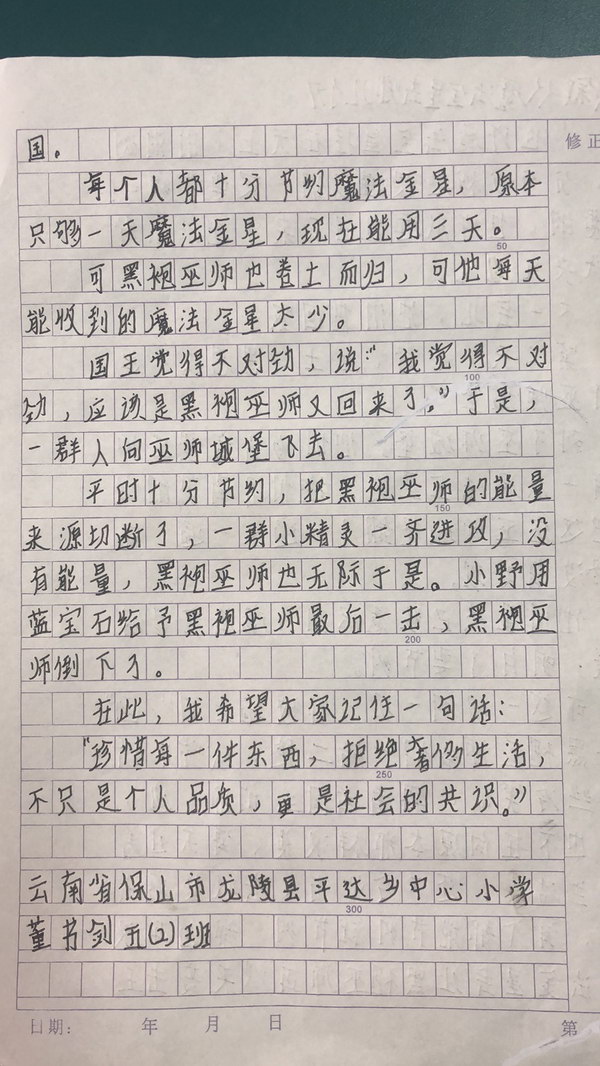 国。
每个人都十分节约魔法金星，原本
只够一天魔法金星，现在能用三天。
50
可黑袍巫师也卷土而归，可他每天
能收到的魔法金星太少。
国王觉得不对劲，说：“我觉得不对
100
劲，应该是黑袍巫师又回来了。”于是，
一群人向巫师城堡飞去。
平时十分节约，把黑袍巫师的能量
150
来源切断了，一群小精灵一齐进攻，没
有能量，黑袍巫师也无际于是。小野用
蓝宝石给予黑袍巫师最后一击，黑袍巫
200
师倒下了。
在此，我希望大家记住一句话：
“珍惜每一件东西，拒绝奢侈生活，
250
不只是个人品质，更是社会的共识。”
云南省保山市龙陵县平达乡中心小学
300
董书剑五(2)班
修正
日期： 年 月 日
第